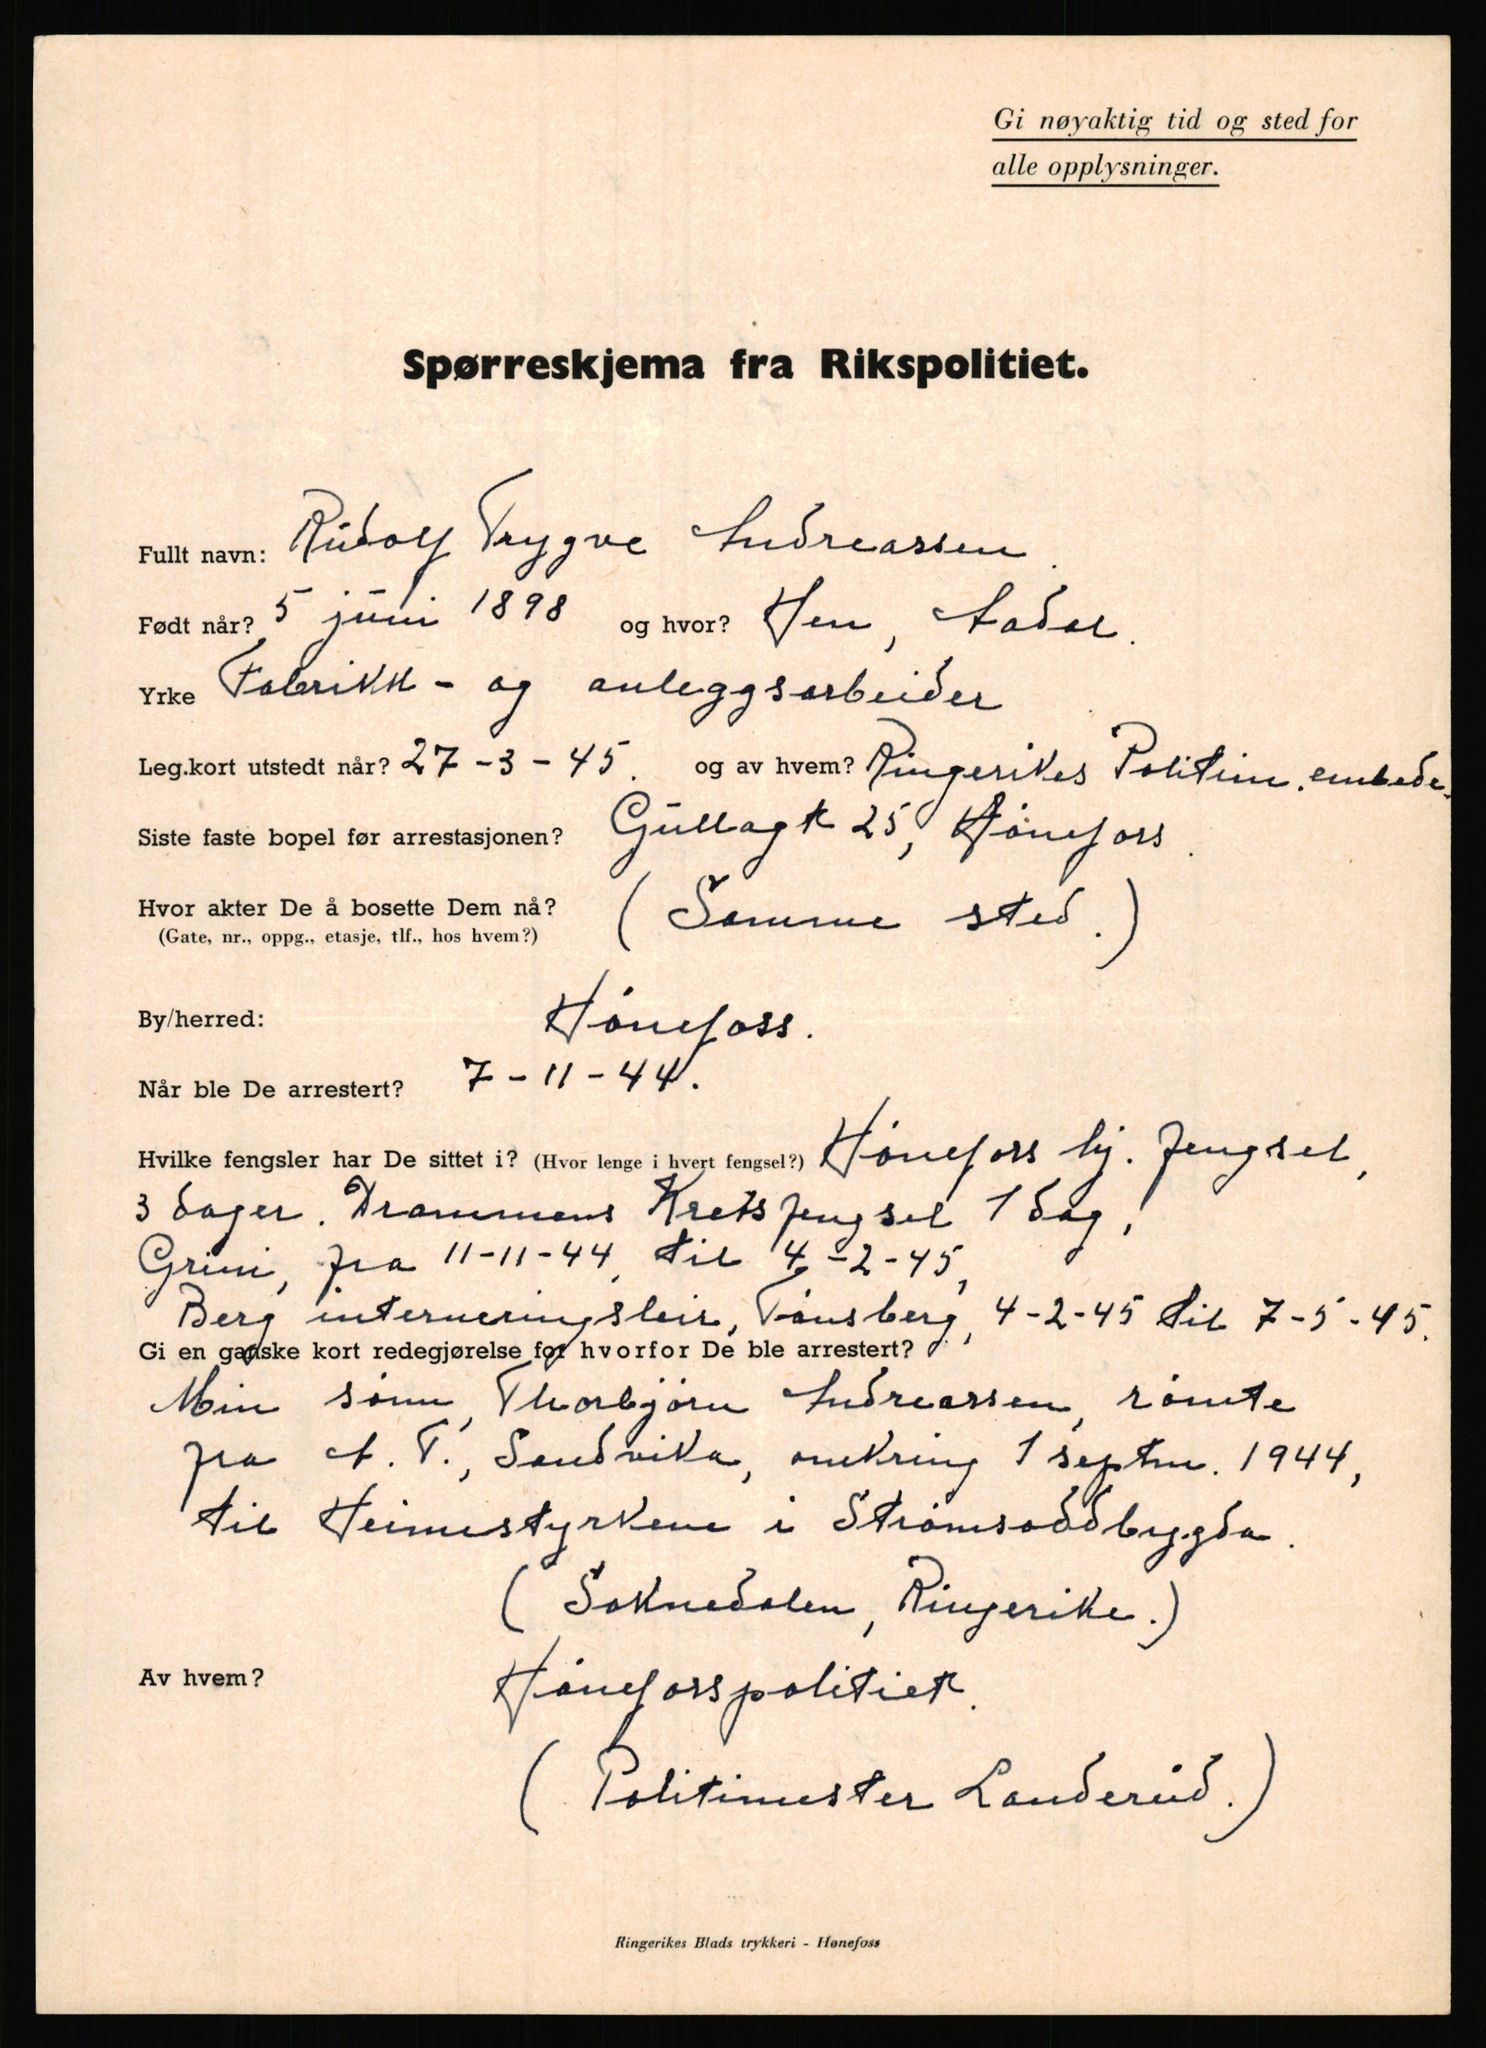 Gi nøyaktig tid og sted for
alle opplysninger.
Spørreskjema fra Rikspolitiet.
Fullt navn: Rudolf Trygve Andreassen.
Født når? 5 juni 1898 og hvor? Hen, Aadal.
Yrke Fabrikk- og anleggsarbeider
Leg.kort utstedt når? 27-3-45. og av hvem? Ringerikes Politim.embede.
Siste faste bopel før arrestasjonen? Gullagt 25, Hønefoss.
Hvor akter De å bosette Dem nå? (Samme sted.)
(Gate, nr., oppg., etasje, tlf., hos hvem?)
By/herred: Hønefoss.
Når ble De arrestert? 7-11-44.
Hvilke fengsler har De sittet i? (Hvor lenge i hvert fengsel?) Hønefoss hj. fengsel,
3 dager. Drammens Kretsfengsel 1 dag,
Grini, fra 11-11-44, til 4-2-45,
Berg interneringsleir, Tønsberg, 4-2-45 til 7-5-45.
Gi en ganske kort redegjørelse for hvorfor De ble arrestert?
Min sønn, Thorbjørn Andreassen, rømte
fra A.T., Sandvika, omkring 1 septm. 1944,
til Heimestyrkene i Strømsoddbygda.
(Soknedalen, Ringerike.)
Av hvem? Hønefosspolitiet.
(Politimester Landerud.)
Ringerikes Blads trykkeri - Hønefoss